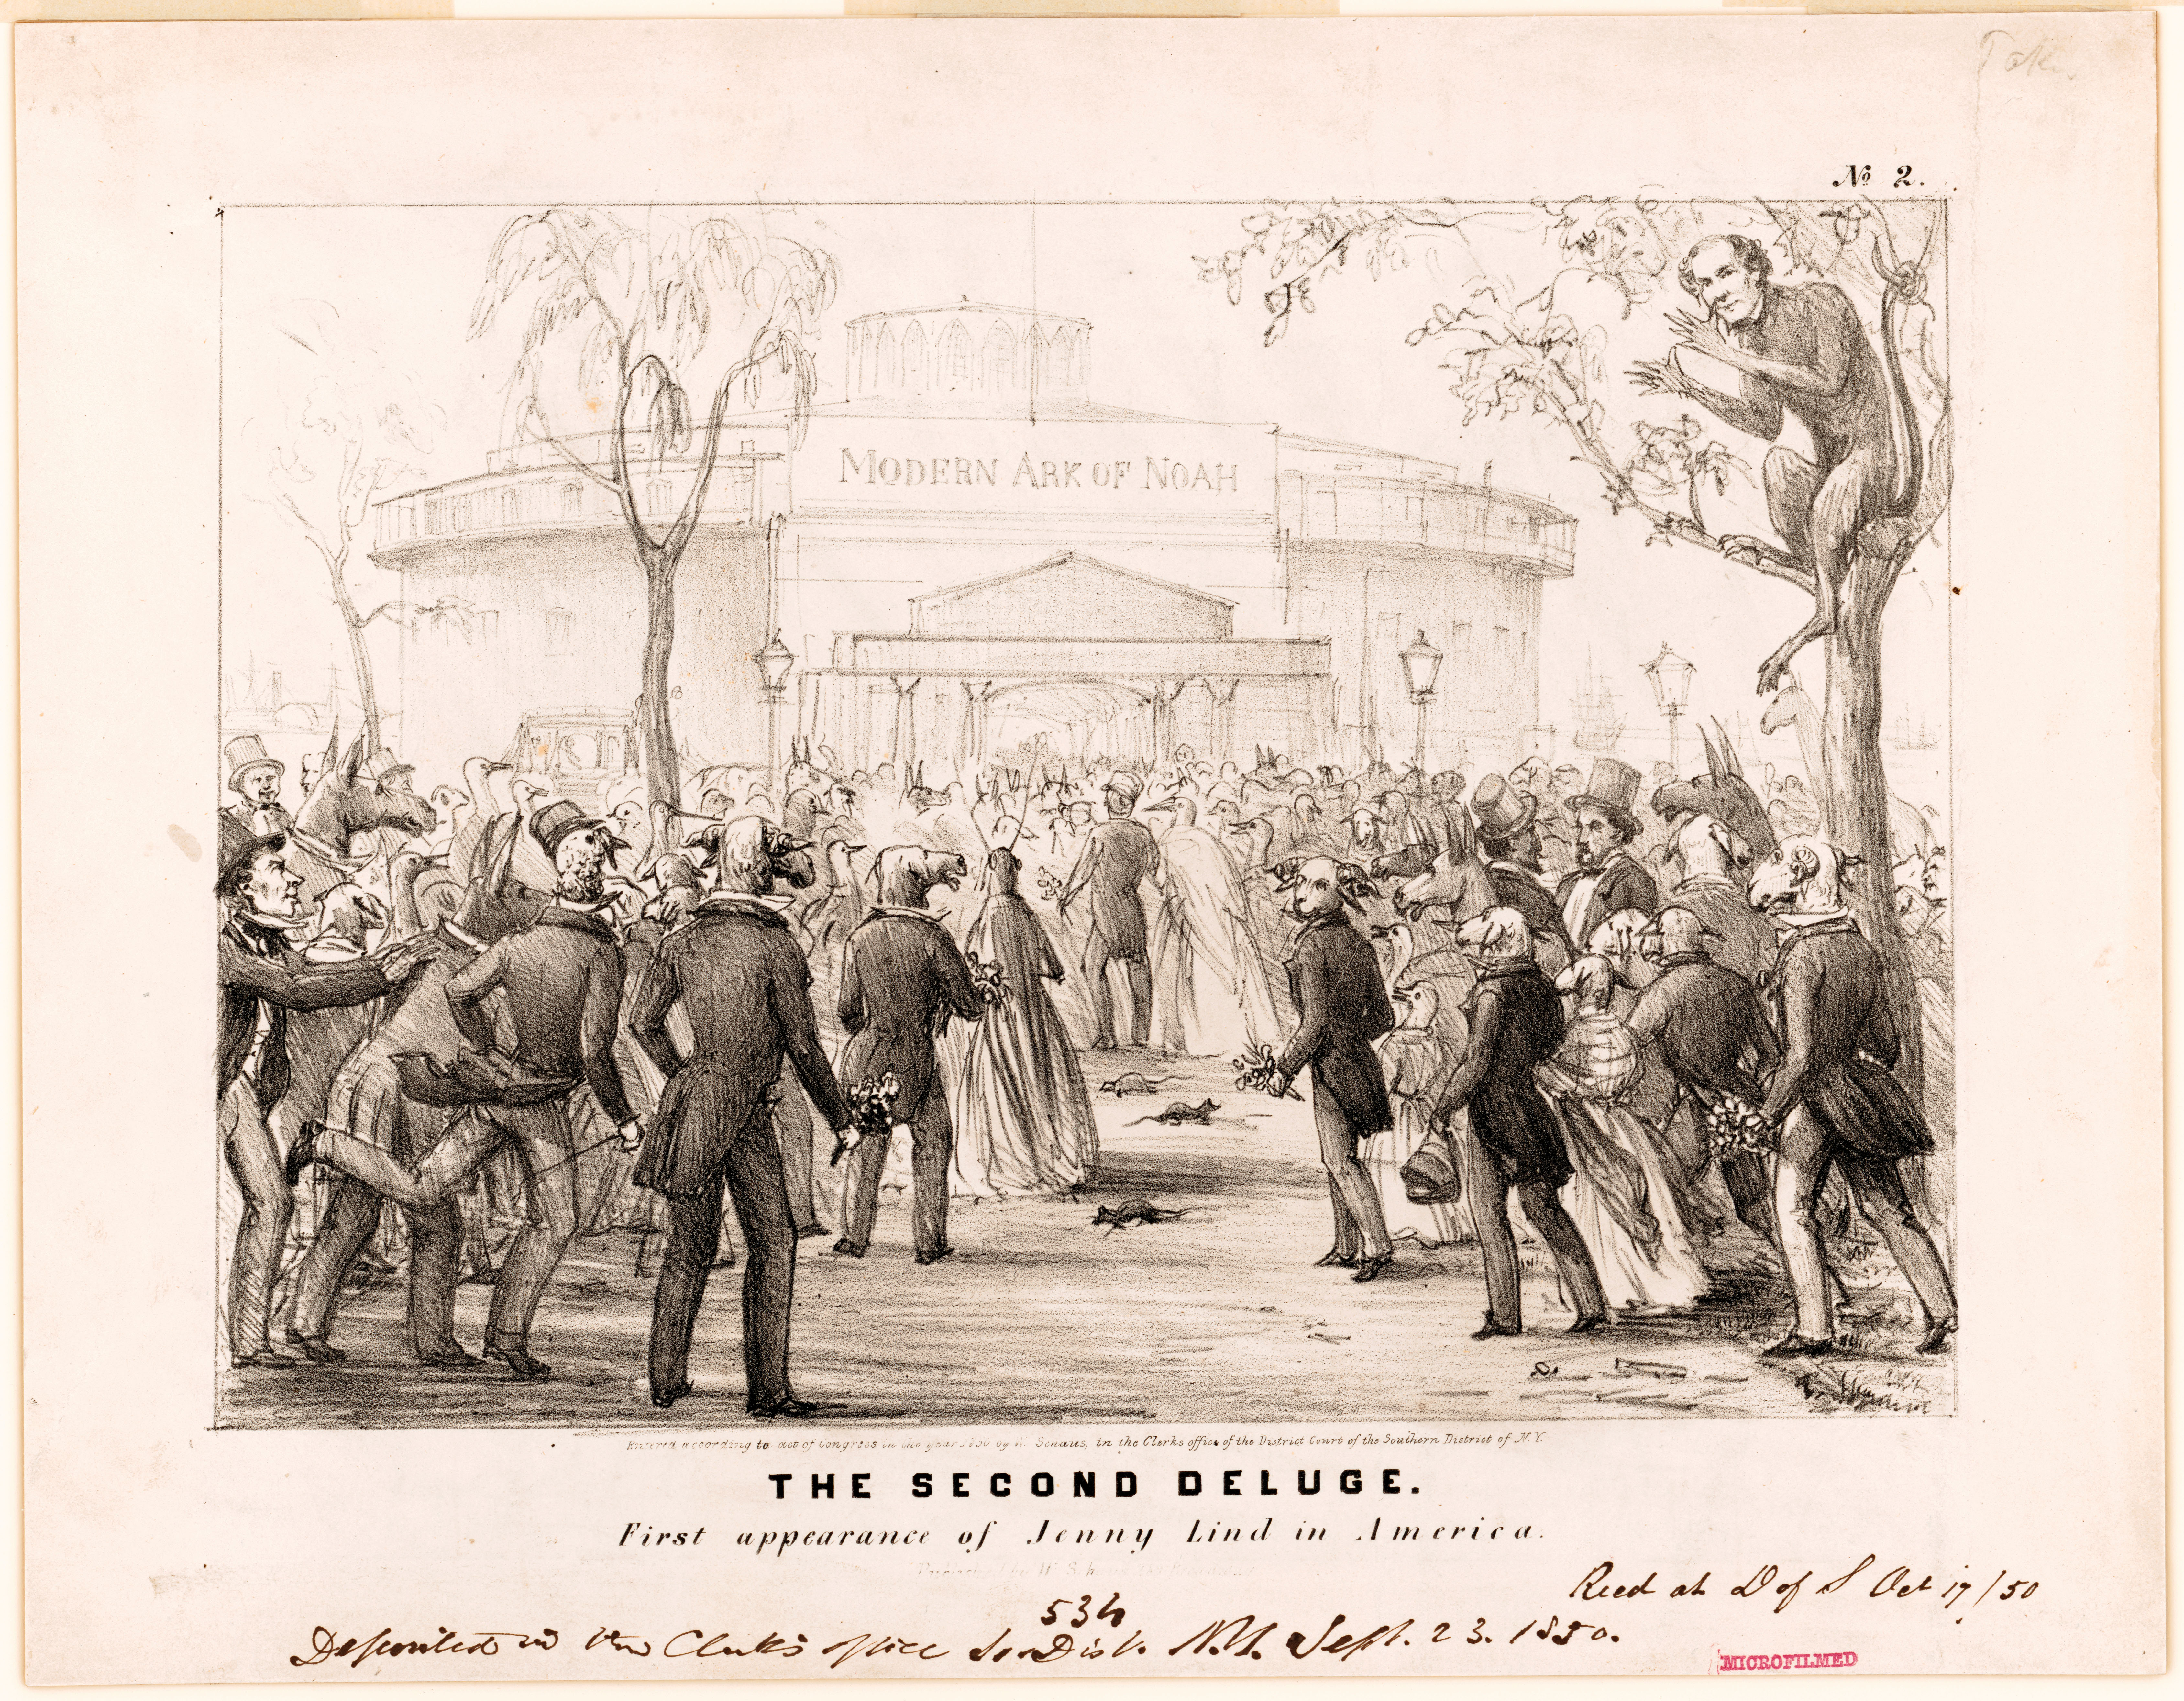 No 2.
MODERN ARK OF NOAH
Entered according to act of Congress in the year 1850 by W. Schaus, in the Clerks office of the District Court of the Southern District of N.Y.
THE SECOND DELUGE.
First appearance of Jenny Lind in America.
Published by W. Schaus Broadway
Recd at D of S Oct 17/50
534
Deposited in the Clerk's office So. Dist. N.Y. Sept. 23. 1850.
MICROFILMED